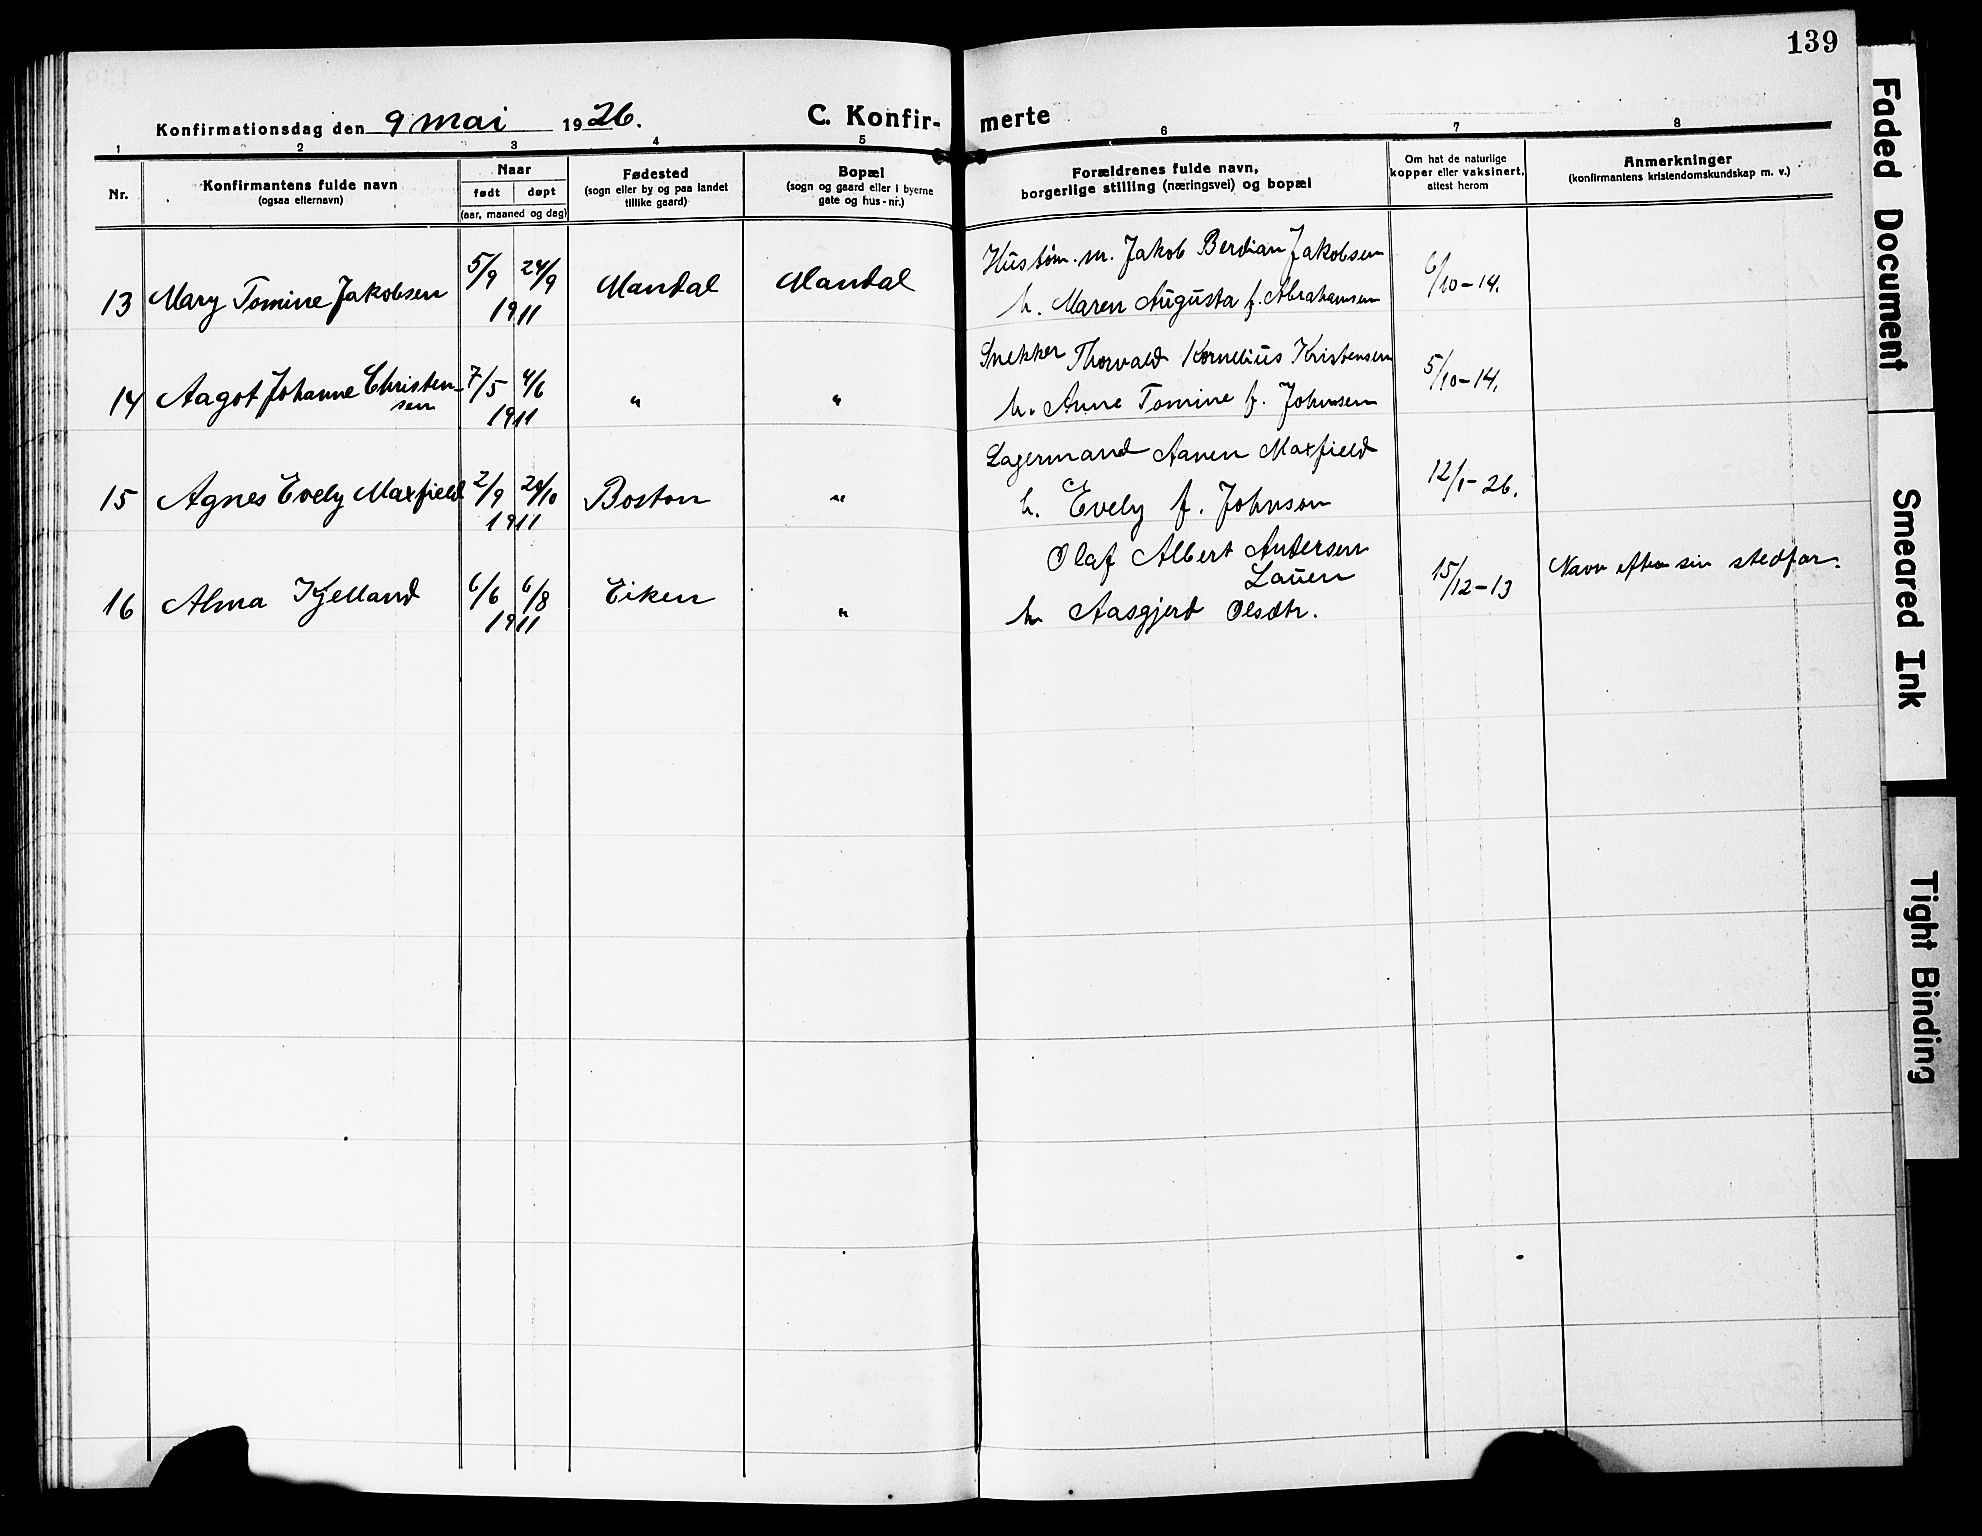 139
Konfirmationsdag den 9 mai 1926.
C. Konfir-
merte
1 2 3 4 5 6 7 8
Nr.
Konfirmantens fulde navn
(ogsaa efternavn)
Naar
født døpt
(aar, maaned og dag)
Fødested
(sogn eller by og paa landet
tillike gaard)
Bopæl
(sogn og gaard eller i byerne
gate og hus-nr.)
Forældrenes fulde navn,
borgerlige stilling (næringsvei) og bopæl
Om hat de naturlige
kopper eller vaksinert,
attest herom
Anmerkninger
(konfirmantens kristendomskundskap m. v.)
13 Mary Tomine Jakobsen 5/9 24/9 1911 Mandal Mandal
Hustøm. m. Jakob Berdian Jakobsen
h. Maren Augusta f. Abrahamsen
6/10-14.
14 Aagot Johanne Christen-
sen
7/5 4/6 1911 " "
Snekker Thorvald Kornelius Kristensen
h. Anne Tomine f. Johnsen
5/10-14.
15 Agnes Evely Maxfield 2/9 /10 1911 Boston "
Lagermand Aanen Maxfield
h. Evely f. Johnson
12/1-26.
16 Alma Kjelland 6/6 6/8 1911 Eiken "
Olaf Albert Andersen
Lauen
h Aasgjerd Olsdtr.
15/12-13
Navn efter sin stedfar.
Faded Document
Smeared Ink
Tight Binding